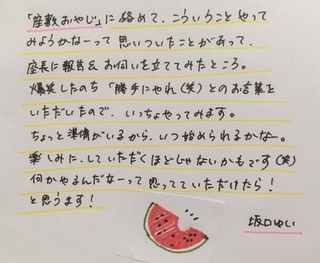 「座敷おやじ」に絡めて、こういうことやって
みようかなーって思いついたことがあって、
座長に報告&お伺いを立ててみたところ。
爆笑したのち「勝手にやれ(笑)」とのお言葉を
いただいたので、いっちょやってみます。
ちょっと準備があるから、いつ始められるかなー。
楽しみに、していただくほどじゃないかもです(笑)
何かやるんだなーって思ってていただけたら!
と思うます!
坂口ゆい